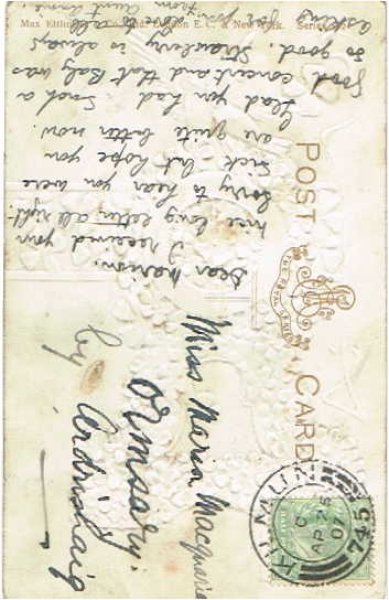 POST CARD
THE ROYAL SERIES
KILMUN
C
AP 25
07
745
Miss Marion Macquarie
Ormsary.
by Ardrishaig
Dear Marion,
I received your
nice long letter all right.
Sorry to hear you were
sick – but hope you
are quite better now.
Glad you had such a
good concert and that Baby was
so good. Strawberry is always
asking for you
from Auntie
Max Ettlinger London E.C. & New York. Series